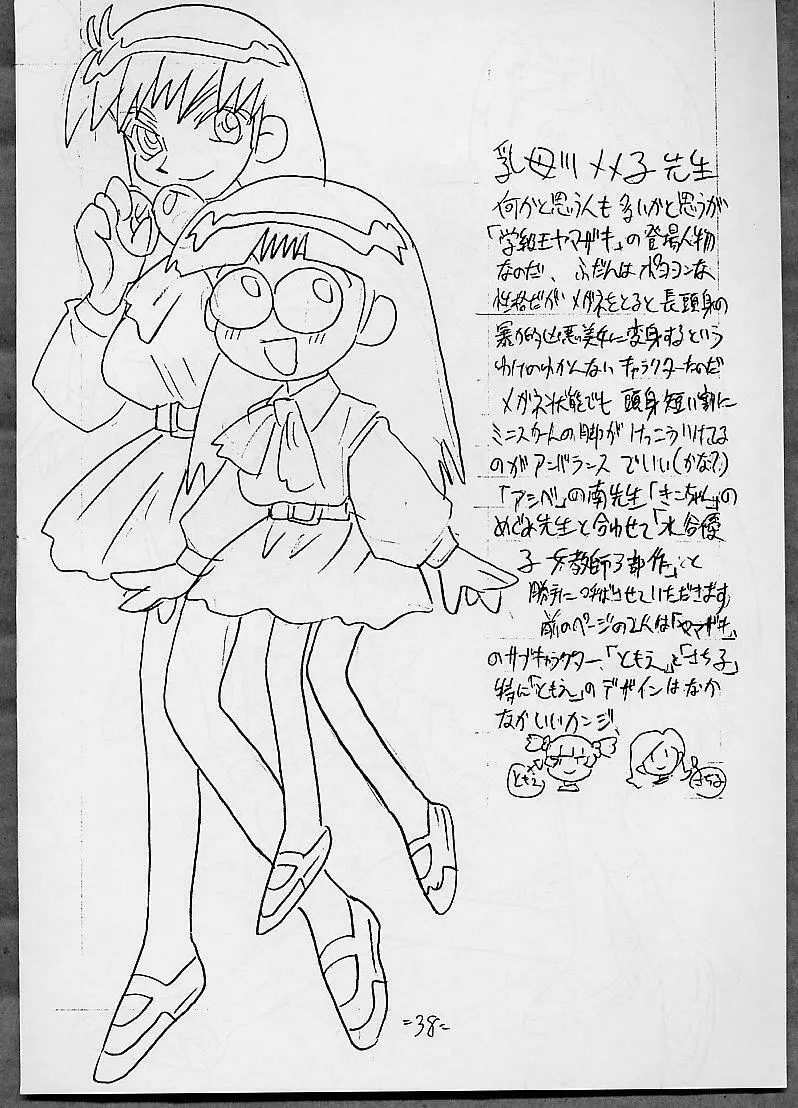 乳母川メメ子先生
何かと思う人も多いかと思うが
「学級王ヤマザキ」の登場人物
なのだ、ふだんはポヨヨンな
性格だがメガネをとると長頭身の
暴力的凶悪美女に変身するという
わけのわかんないキャラクターなのだ
メガネ状態でも頭身短い割に
ミニスカートの脚がけっこういけてる
のがアンバランスでいい(かな?)
「アシベ」の南先生「きこちゃん」の
めぐみ先生と合わせて「水谷優
子女教師3部作」と
勝手に呼ばせていただきます
前のページの2人は「ヤマザキ」
のサブキャラクター、「ともえ」と「さち子」
特に「ともえ」のデザインはなか
なかいいカンジ、
ともえ
さち子
=38=